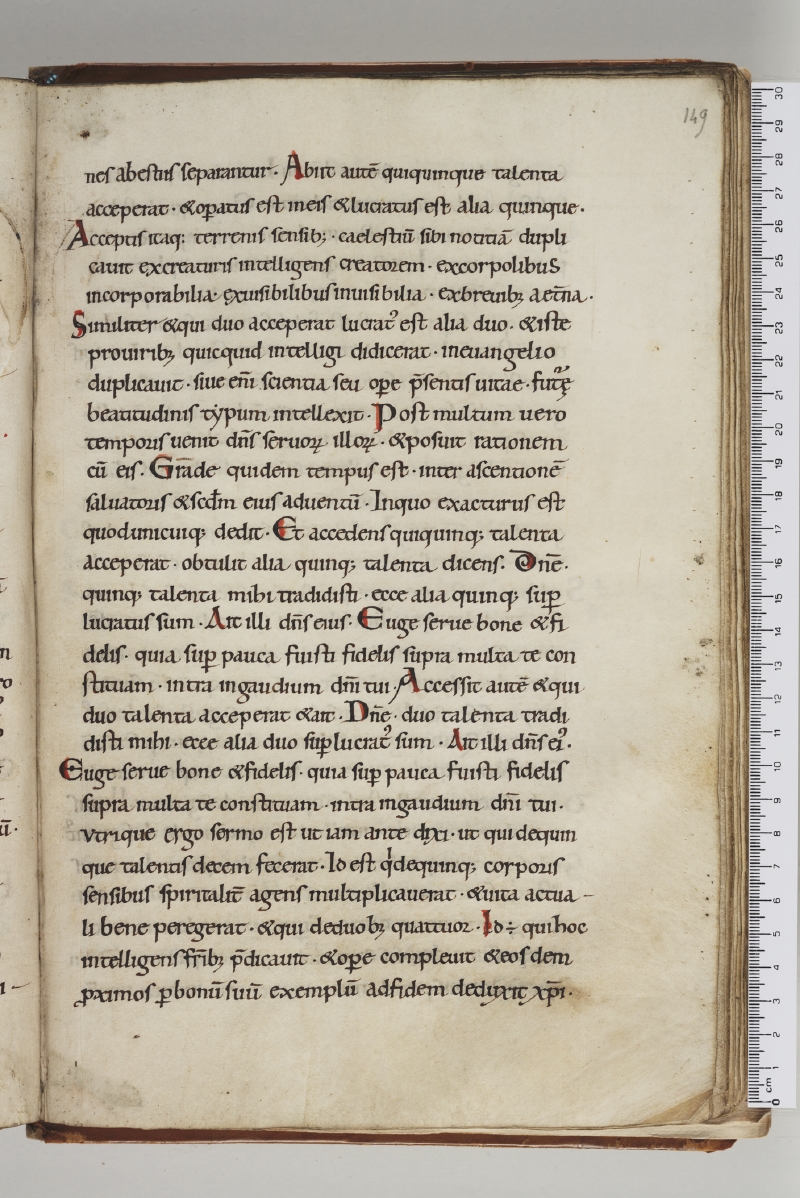 149
nes abestiis separantur. Abiit autē quiquinque talenta
acceperat. &opatus est ineis &lucratus est alia quinque.
Acceptis itaq; terrenis sensib; caelestiū sibi notitiā dupli
cauit excreaturis intelligens creatorem. excorpolibus
incorporabilia. exuisibilibus inuisibilia. exbreuib; aet̄na.
Similiter &qui duo acceperat lucrat᾽ est alia duo. &iste
prouirib; quicquid intelligi didicerat. ineuangelio
duplicauit. siue eni̅ scientia seu ope p̄sentis uitae. futuręę
beatitudinis typum intellexit. Post multum uero
temporis uenit dn̄s seruoꝝ illoꝝ. &posuit rationem
cū eis. Grāde quidem tempus est. inter ascentionē
saluatoris &scd̄m eius aduentū. Inquo exacturus est
quodunicuiq; dedit. Et accedens quiquinq; talenta
acceperat. obtulit alia quinq; talenta dicens. Dn̄e.
quinq; talenta mihi tradidisti. ecce alia quinq; suꝑ
lucratus sum. Ait illi dn̄s eius. Euge serue bone &fi
delis. quia suꝑ pauca fuisti fidelis supra multa te con
stituam. intra ingaudium dn̄i tui. Accessit autē &qui
duo talenta acceperat &ait. Dn̄e. duo talenta tradi
disti mihi. ecce alia duo suꝑlucrat᾽ sum. Ait illi dn̄s ei᾽.
Euge serue bone &fidelis. quia suꝑ pauca fuisti fidelis
supra multa te constituam. intra ingaudium dn̄i tui.
Vtrique ergo sermo est ut iam ante dixi. ut qui dequin
que talentis decem fecerat. Id est qđ dequinq; corporis
sensibus spiritalit̄ agens multiplicauerat. &uita actua–
li bene peregerat. &qui deduob; quattuor. Id÷ quihoc
intelligens fr̄ib; p̄dicauit. &oꝑe compleuit &eosdem
ꝓximos ꝑbonū suū exemplū adfidem deduxit xp̄i.